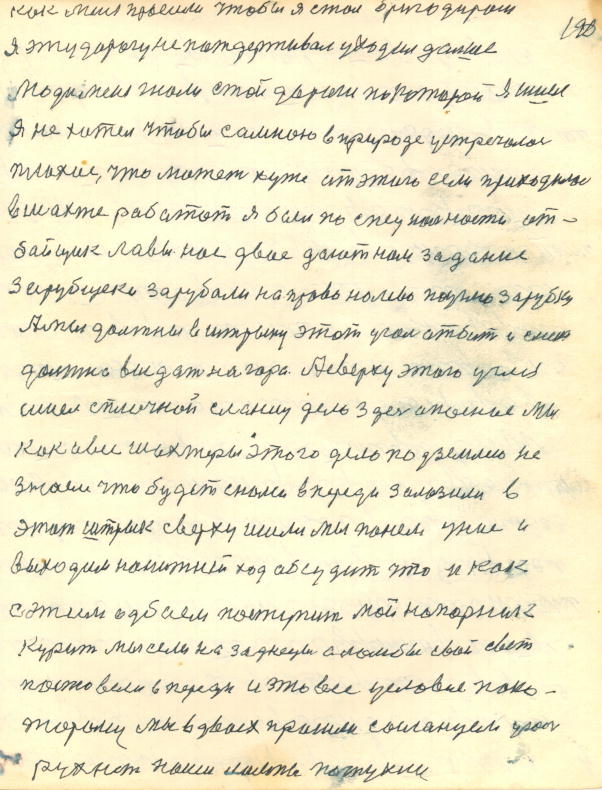 как меня просили чтобы я стал бригадиром
198
я эту дорогу не поддерживал уходил дальше
меня гнали с той дороги по которой я шел
я не хотел чтобы самною в природе устречалос
плохие, что может хуже от этого если приходилос
в шахте работат я был по специалности от-
байщик лавы нас двое дают нам задание
зарубщеки зарубали направо налево зарубку
А мы должны в штрыку этот угол отбит и
должно выдат на гора. А сверху этого угля
шел сплочной сланиц дело здес опасное мы
как все шахтеры этого дело под землею не
знаем что будет снами впереди залозили в
этот штрык сверху шли мы понем уние и
выходим нанижней ход абсудит что и как
с этим здбаем мой напорник
курит мы сели на заднецы а ломбы свой свет
поставели впереди и это все условие пако-
торому мы вдвоех прошли
рухнет наши ломпы потухли